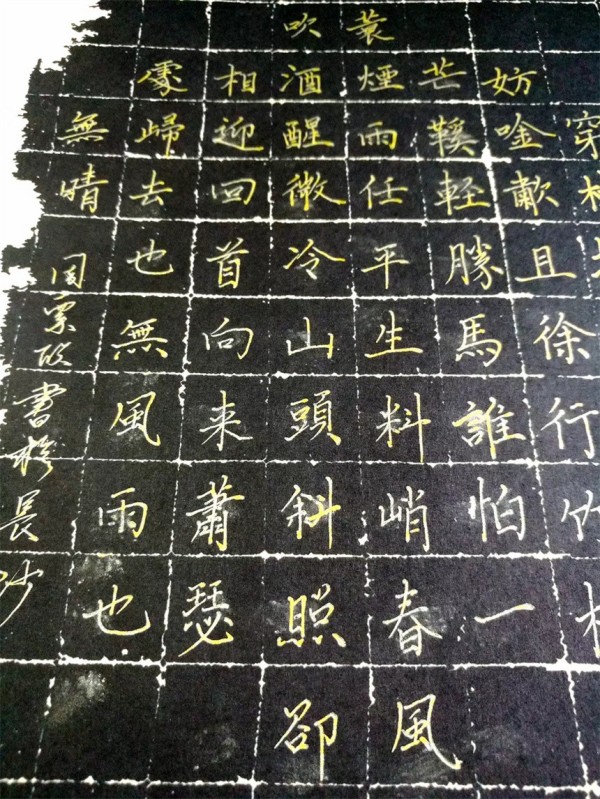 穿林
妨唫歗且徐行竹杖
芒鞵輕勝馬誰怕一
蓑煙雨任平生料峭春風
吹酒醒微冷山頭斜照卻
相迎回首向来蕭瑟
處歸去也無風雨也
無晴
周書於長沙